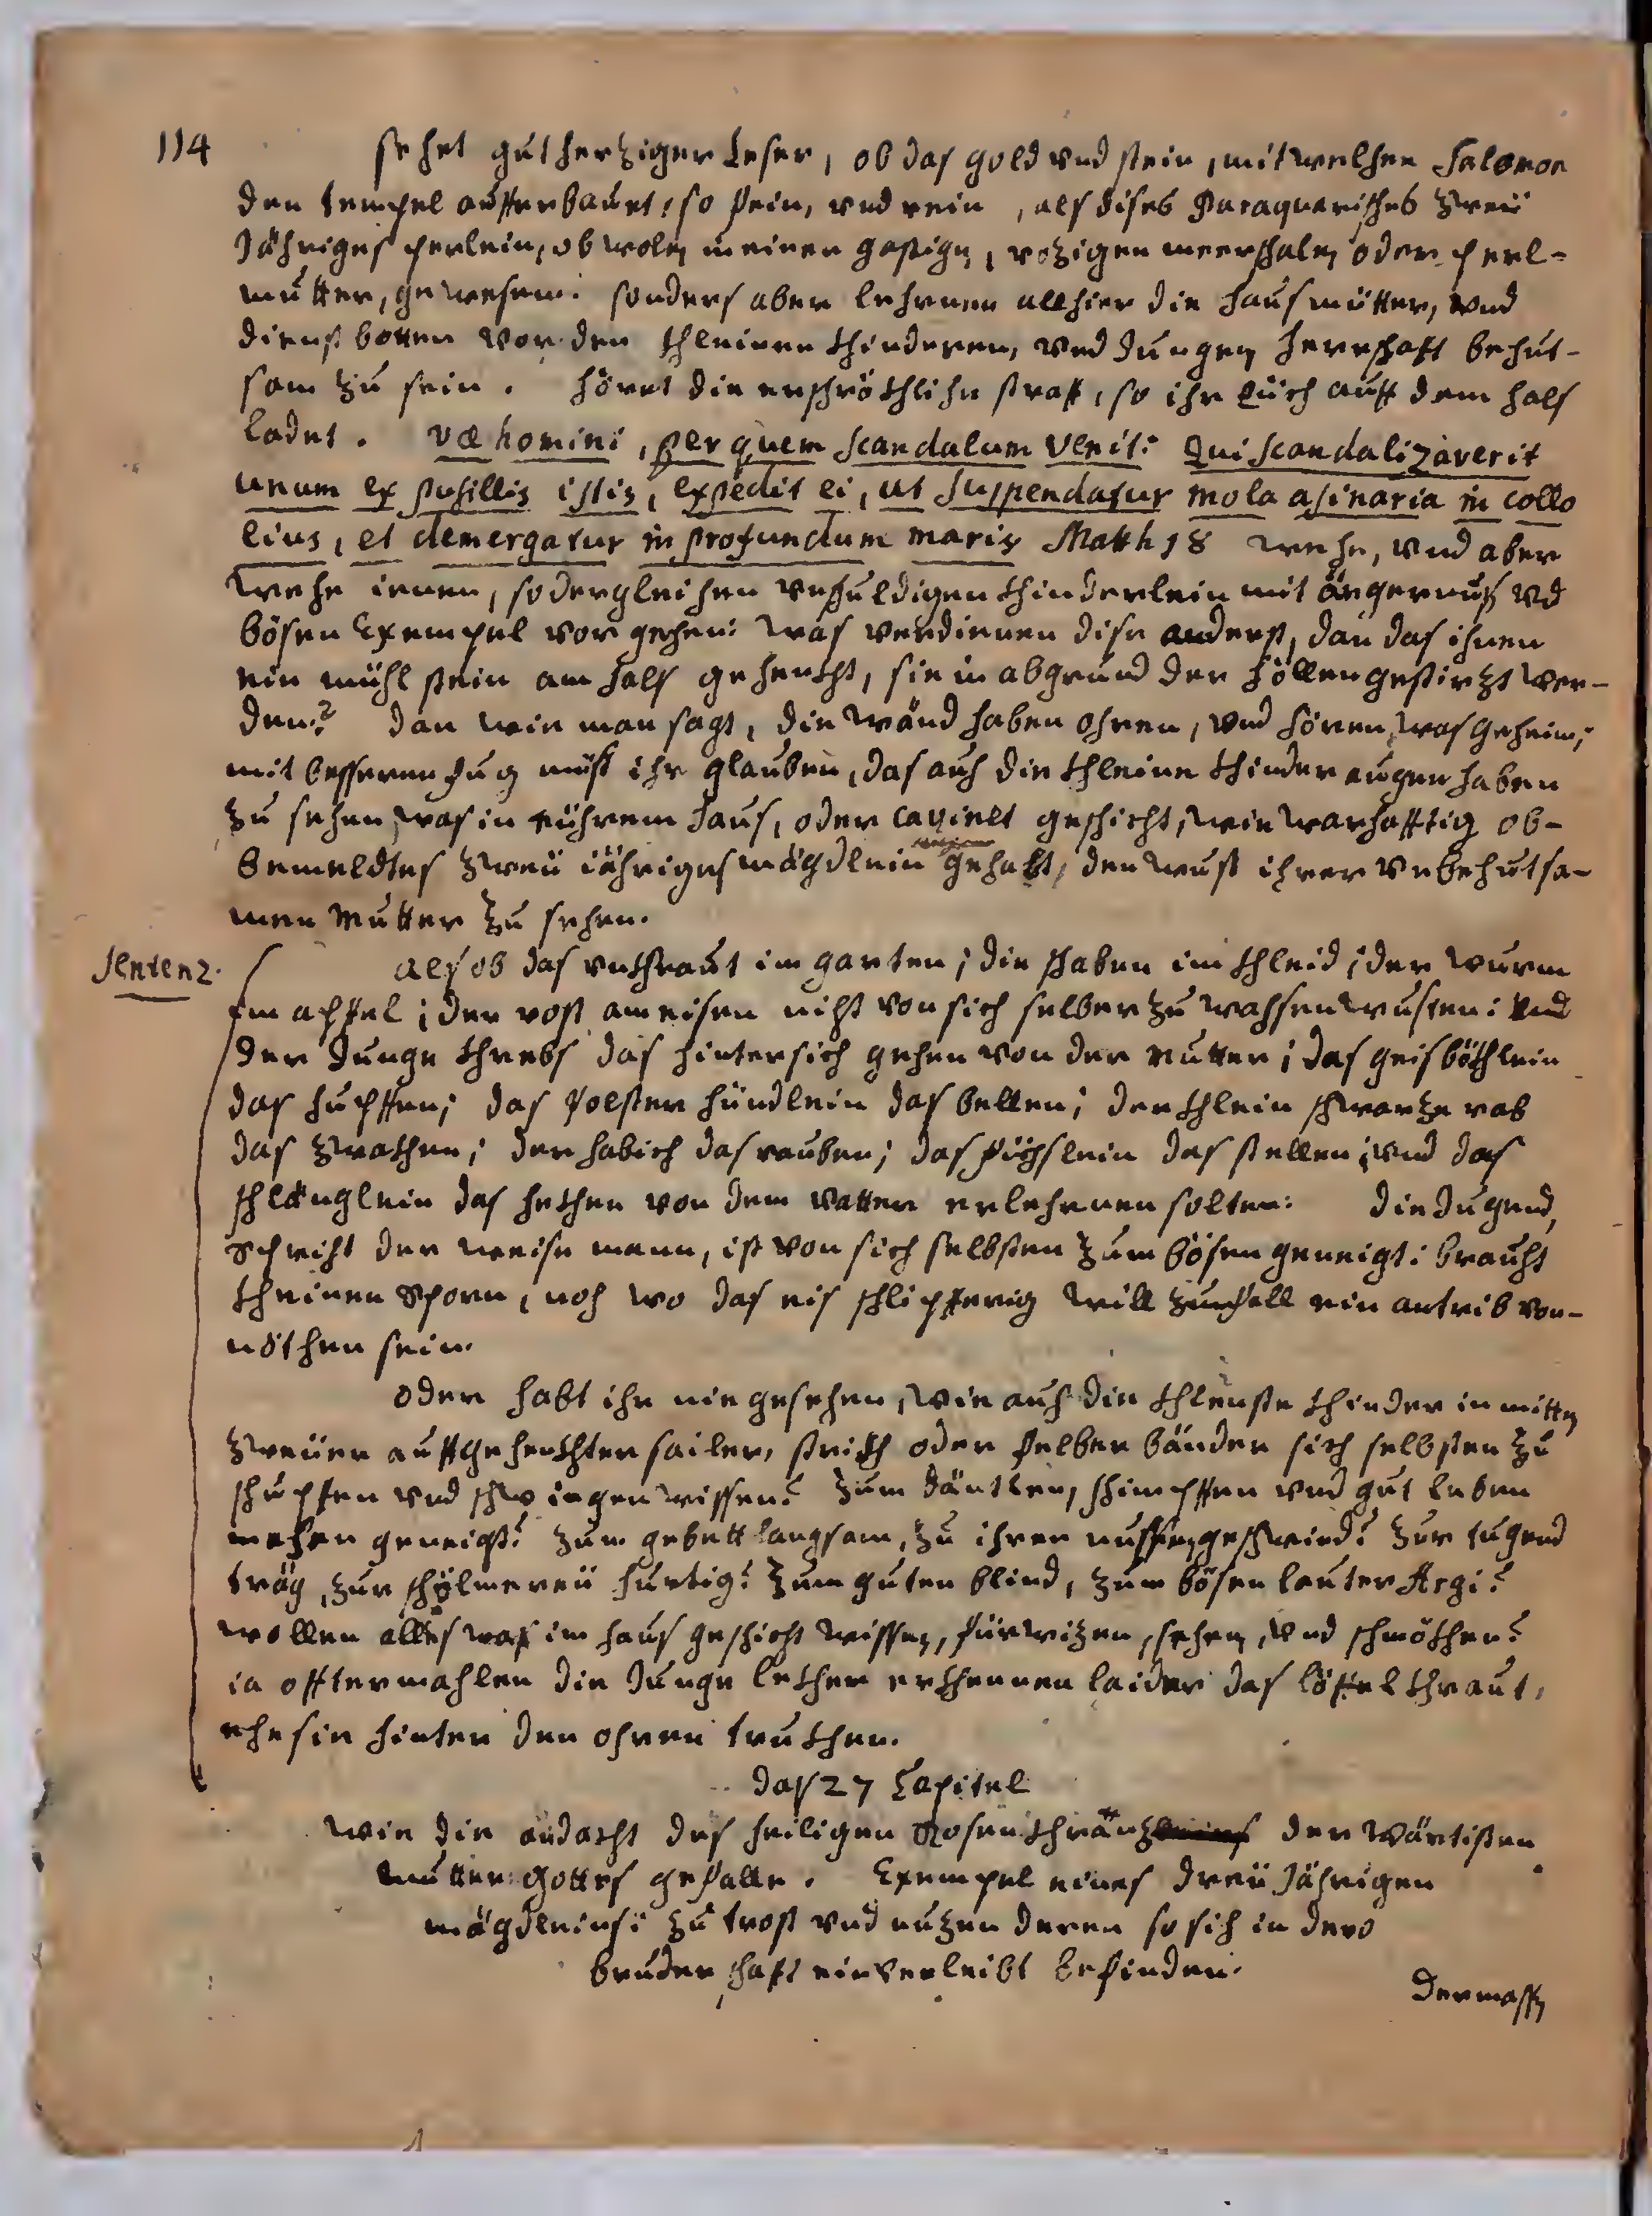 114
sehet gutherziger Leser, ob das gold vnd stein, mit welchen Salomon
den tempel aufferbauet, so fein, vnd rein, als dises Paraquarisches zweü
Jähriges perlein, ob wolen in einen gastigen, rozigen meerschalen oder perl-
mutter, gewesen. sonders aber lehrnen allhier die hausmütter, vnd
dienstbotten vor den khleinen khinderen, vnd Jungen herrschafft behut-
sam zu sein. höret die erschröckhliche straff, so ihr Eüch auff dem hals
ladet. væ homini, per quem scandalum venit: Qui scandalizaverit
unum ex pusillis istis, expedit ei, ut suspendatur mola asinaria in collo
eius, et demergatur in profundum maris Matth 18 wehe, vnd aber
wehe ienen, so dergleichen vnschuldigen khinderlein mit ärgernuß vnd
bösen Exempel vorgehen: was verdienen dise anderst, dan das ihnen
ein mühlstein am hals gehenckht, sie in abgrund der höllen gestirzt wer-
den? dan wie man sagt, die wänd haben ohren, vnd hören, was geheim;
mit besseren fug müst ihr glauben, das auch die khleine khinder augen haben
zu sehen, was in eührem haus, oder capielt geschicht, wie warhafftig ob-
bemeldtes zweü iähriges mägdlein gehabt, den wust ihrer vnbehutsa-
men Mutter zu sehen.
Sentenz.
als ob das vnkhraut im garten; die schaben im khleid; der wurm
im apffel; der rost am eisen nicht von sich selber zu wachsen wusten: vnd
der Junge khrebs das hintersich gehen von der mutter; das geisböckhlein
das hupffen; das polster hündlein das bellen; der khlein schwarze rab
das zwackhen; der habich das rauben; das füchslein das stellen; vnd das
schlänglein das heckhen von dem vatter erlehrnen solten: die Jugend,
Spricht der weise mann, ist von sich selbsten zum bösen geneigt: braucht
kheinen Sporn, noch wo das eis schlipfferig will zum fall ein antrib von-
nöthen sein.
oder habt ihr nie gesehen, wie auch die khlenste khinder in mitten
zweüer auffgehenckhter sailer, strickh oder felber bänder sich selbsten zu
schupfen vnd schwingen wissen? zum däntlen, schimpffen vnd gut leben
mehen geneigt? zum gebett langsam, zu ihren nussen geschwind? zur tugend
träg, zur schölmereü hurtig? zum guten blind, zum bösen lauter Argi?
wollen alles was im haus geschicht wissen, fürwizen, sehen, vnd schmökhen?
ia offtermahlen die Junge lekher erkhennen laider das löffel khraut,
ehe sie hinter den ohren truckhen.
das 27 Capitel
wie die andacht des heiligen Rosenkhranz der wärtisten
mutter Gottes gefalle. Exempel eines dreü Jährigen
mägdleins: zu trost vnd nuzen deren so sich in dero
bruderschafft einverleibt befinden.
Dermassen